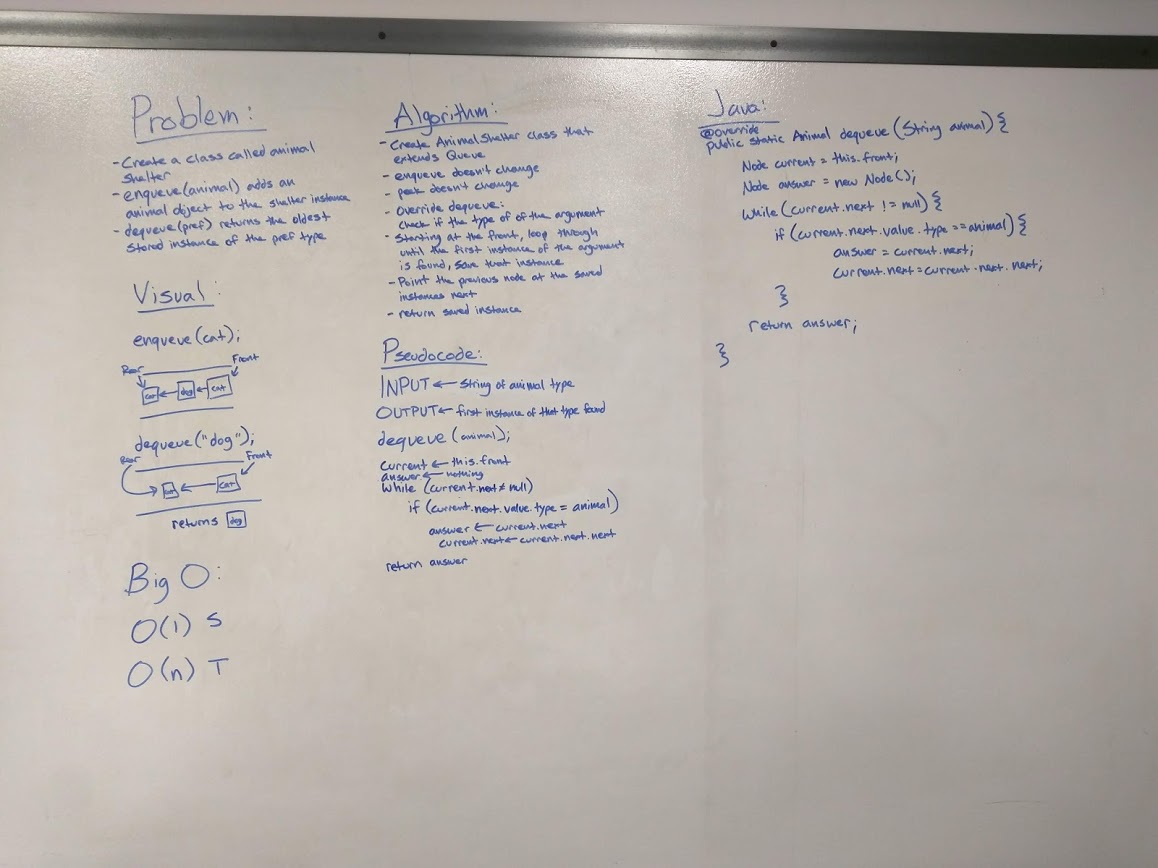 Problem:
- Create a class called animal
shelter
- enqueue(animal) adds an
animal object to the shelter instance
- dequeue(pref) returns the oldest
stored instance of the pref type
Visual:
enqueue(cat);
Rear
Front
cat
dog
cat
dequeue("dog");
Rear
Front
cat
cat
returns dog
Big O:
O(1) S
O(n) T
Algorithm:
- Create AnimalShelter class that
extends Queue
- enqueue doesn't change
- peek doesn't change
- Override dequeue:
check if the type of of the argument
- Starting at the front, loop through
until the first instance of the argument
is found, save that instance
- Point the previous node at the saved
instances next
- return saved instance
Pseudocode:
INPUT ← String of animal type
OUTPUT ← first instance of that type found
dequeue (animal);
current ← this.front
answer ← nothing
while (current.next ≠ null)
if (current.next.value.type = animal)
answer ← current.next
current.next ← current.next.next
return answer
Java:
@override
public static Animal dequeue (String animal) {
Node current = this.front;
Node answer = new Node();
while (current.next != null) {
if (current.next.value.type == animal) {
answer = current.next;
current.next = current.next.next;
}
return answer;
}